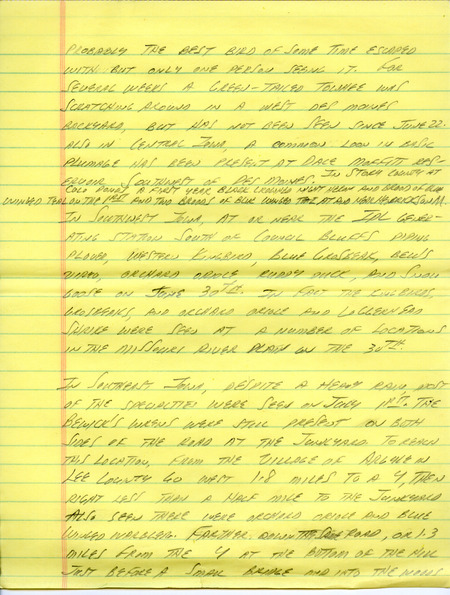 PROBABLY THE BEST BIRD OF SOME TIME ESCAPED
WITH BUT ONLY ONE PERSON SEEING IT. FOR
SEVERAL WEEKS A GREEN-TAILED TOWHEE WAS
SCRATCHING AROUND IN A WEST DES MOINES
BACKYARD, BUT HAS NOT BEEN SEEN SINCE JUNE 22.
ALSO IN CENTRAL IOWA, A COMMON LOON IN BASIC
PLUMAGE HAS BEEN PRESENT AT DALE MOFFITT RES-
ERVOIR SOUTHWEST OF DES MOINES. IN STORY COUNTY AT
COLO PONDS A FIRST YEAR BLACK CROWNED NIGHT HERON AND BROOD OF BLUE
WINGED TEAL ON THE 1ST AND TWO BROODS OF BLUE WINGED TEAL AT
IN SOUTHWEST IOWA, AT OR NEAR THE IPL GENER-
ATING STATION SOUTH OF COUNCIL BLUFFS PIPING
PLOVER, WESTERN KINGBIRD, BLUE GROSBEAK, BELL'S
VIREO, ORCHARD ORIOLE RUDDY DUCK, AND SNOW
GOOSE ON JUNE 30TH. IN FACT THE KINGBIRDS,
GROSBEAKS, AND ORCHARD ORIOLE AND LOGGERHEAD
SHRIKE WERE SEEN AT A NUMBER OF LOCATIONS
IN THE MISSOURI RIVER PLAIN ON THE 30TH.
IN SOUTHEAST IOWA, DESPITE A HEAVY RAIN, MOST
OF THE SPECIALTIES WERE SEEN ON JULY 1ST. THE
BEWICK'S WRENS WERE STILL PRESENT ON BOTH
SIDES OF THE ROAD AT THE JUNKYARD. TO REACH
THIS LOCATION, FROM THE VILLAGE OF ARGYLE IN
LEE COUNTY GO WEST 1.8 MILES TO A Y, THEN
RIGHT LESS THAN A HALF MILE TO THE JUNKYARD
ALSO SEEN THERE WERE ORCHARD ORIOLE AND BLUE
WINGED WARBLER. FARTHER DOWN THE ROAD, OR 1.3
MILES FROM THE Y AT THE BOTTOM OF THE HILL
JUST BEFORE A SMALL BRIDGE AND INTO THE WOODS